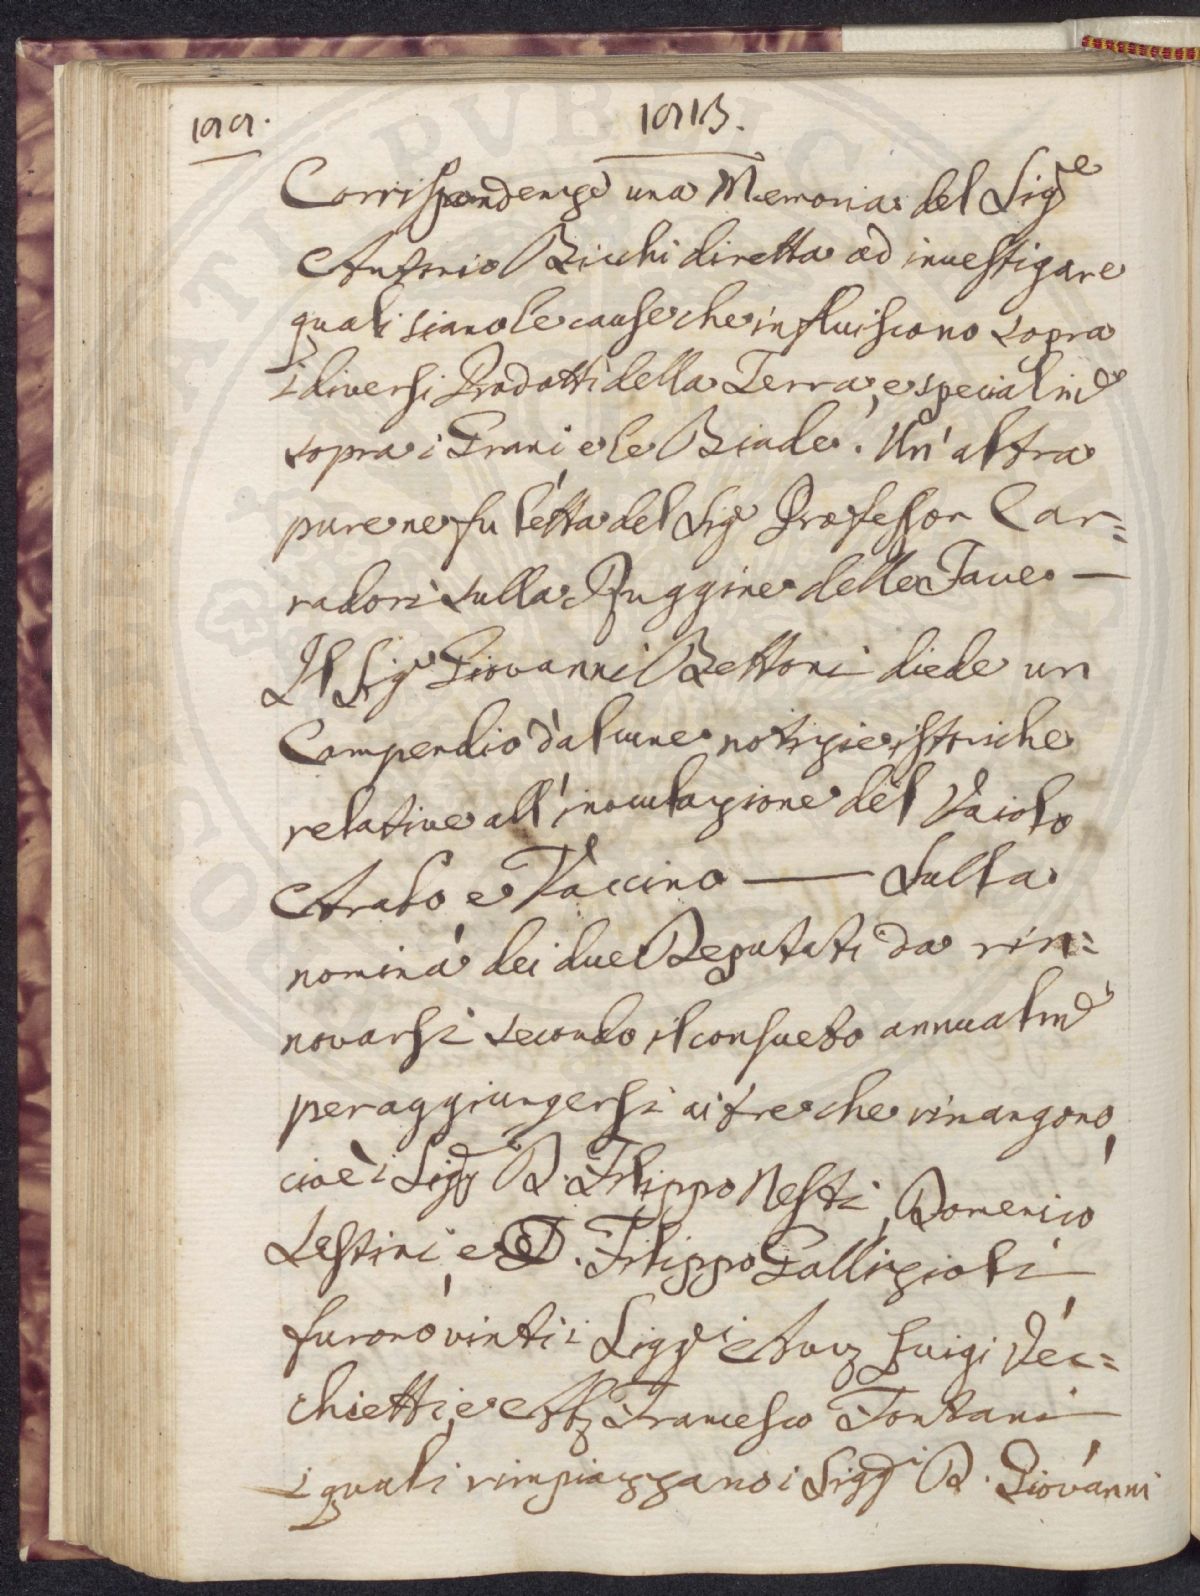 1813.
Corrispondenze una Memoria del Sig.e
Antonio Bicchi diretta ad investigare
quali siano le cause che influiscono sopra
i diversi Prodotti della Terra, e specialm.e
sopra i Grani e le Biade. Un'altra
pure ne fu letta del Sig.e Professor Car=
radori sulla Ruggine delle Fave —
Il Sig.e Giovanni Bettoni diede un
Compendio d'alcune notizie istoriche
relative all'inoculazione del Vaiolo
Arabo e Vaccino — Sulla
nomina dei due Deputati da rin=
novarsi secondo il consueto annualm.e
per aggiungersi ai tre che rimangono,
cioè i Sigg. D. Filippo Nesti, Domenico
Sestini, e D. Filippo Gallizioli
furono vinti i Sigg.i Avv. Luigi Vec=
chietti, e Ab. Francesco Fontani
i quali rimpiazzano i Sigg.i D. Giovanni